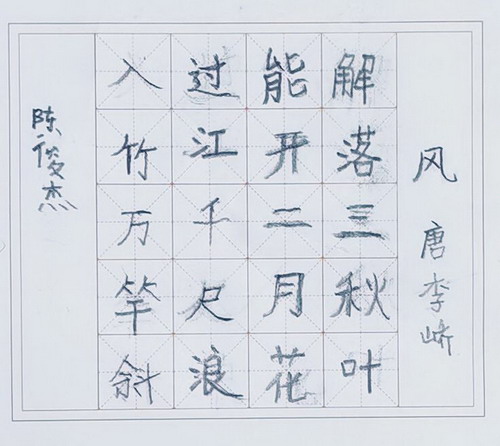 风 唐 李峤
解落三秋叶
能开二月花
过江千尺浪
入竹万竿斜
陈俊杰